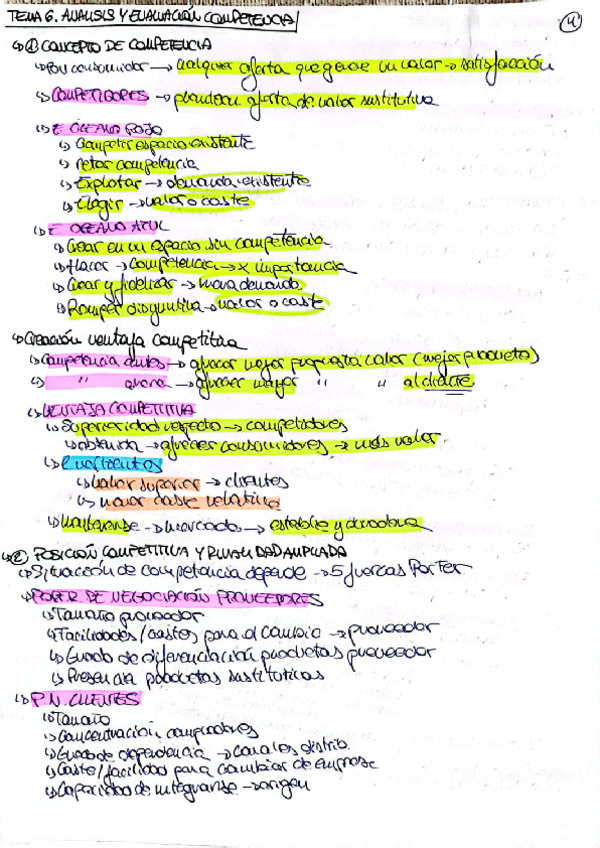 TEMA 6. ANALISIS Y EVALUACIÓN COMPETENCIA
4
↳ ① CONCEPTO DE COMPETENCIA
↳ Por consumidor → cualquier oferta que genere un valor → satisfacción
↳ COMPETIDORES → plantean oferta de valor sustitutiva
↳ E. OCEANO ROJO
↳ Competir espacio existente
↳ retar competencia
↳ Explotar → demanda existente
↳ Elegir → valor o coste
↳ E. OCEANO AZUL
↳ Crear en un espacio sin competencia
↳ Hacer → competencia → x importancia
↳ Crear y fidelizar → nueva demanda
↳ Romper disyuntiva → valor o coste
↳ Creación ventaja competitiva
↳ Competencia antes → ofrecer mejor propuesta valor (mejor producto)
↳ " ahora → ofrecer mayor " " al cliente
↳ VENTAJA COMPETITIVA
↳ Superioridad respecto → competidores
↳ obtenida → ofrecer consumidores → más valor
↳
↳ valor superior → clientes
↳ menor coste relativo
↳ Mantenerse → mercado → estable y duradera
↳ ② POSICIÓN COMPETITIVA Y RIVALIDAD AMPLIADA
↳ Situación de competencia depende → 5 fuerzas Porter
↳ PODER DE NEGOCIACIÓN PROVEEDORES
↳ Tamaño proveedor
↳ Facilidades/costes para el cambio → proveedor
↳ Grado de diferenciación productos proveedor
↳ Presencia productos sustitutivos
↳ P.N. CLIENTES
↳ Tamaño
↳ Concentración compradores
↳ Grado de dependencia → canales distrib.
↳ Coste/facilidad para cambiar de empresa
↳ Capacidad de integrarse → origen